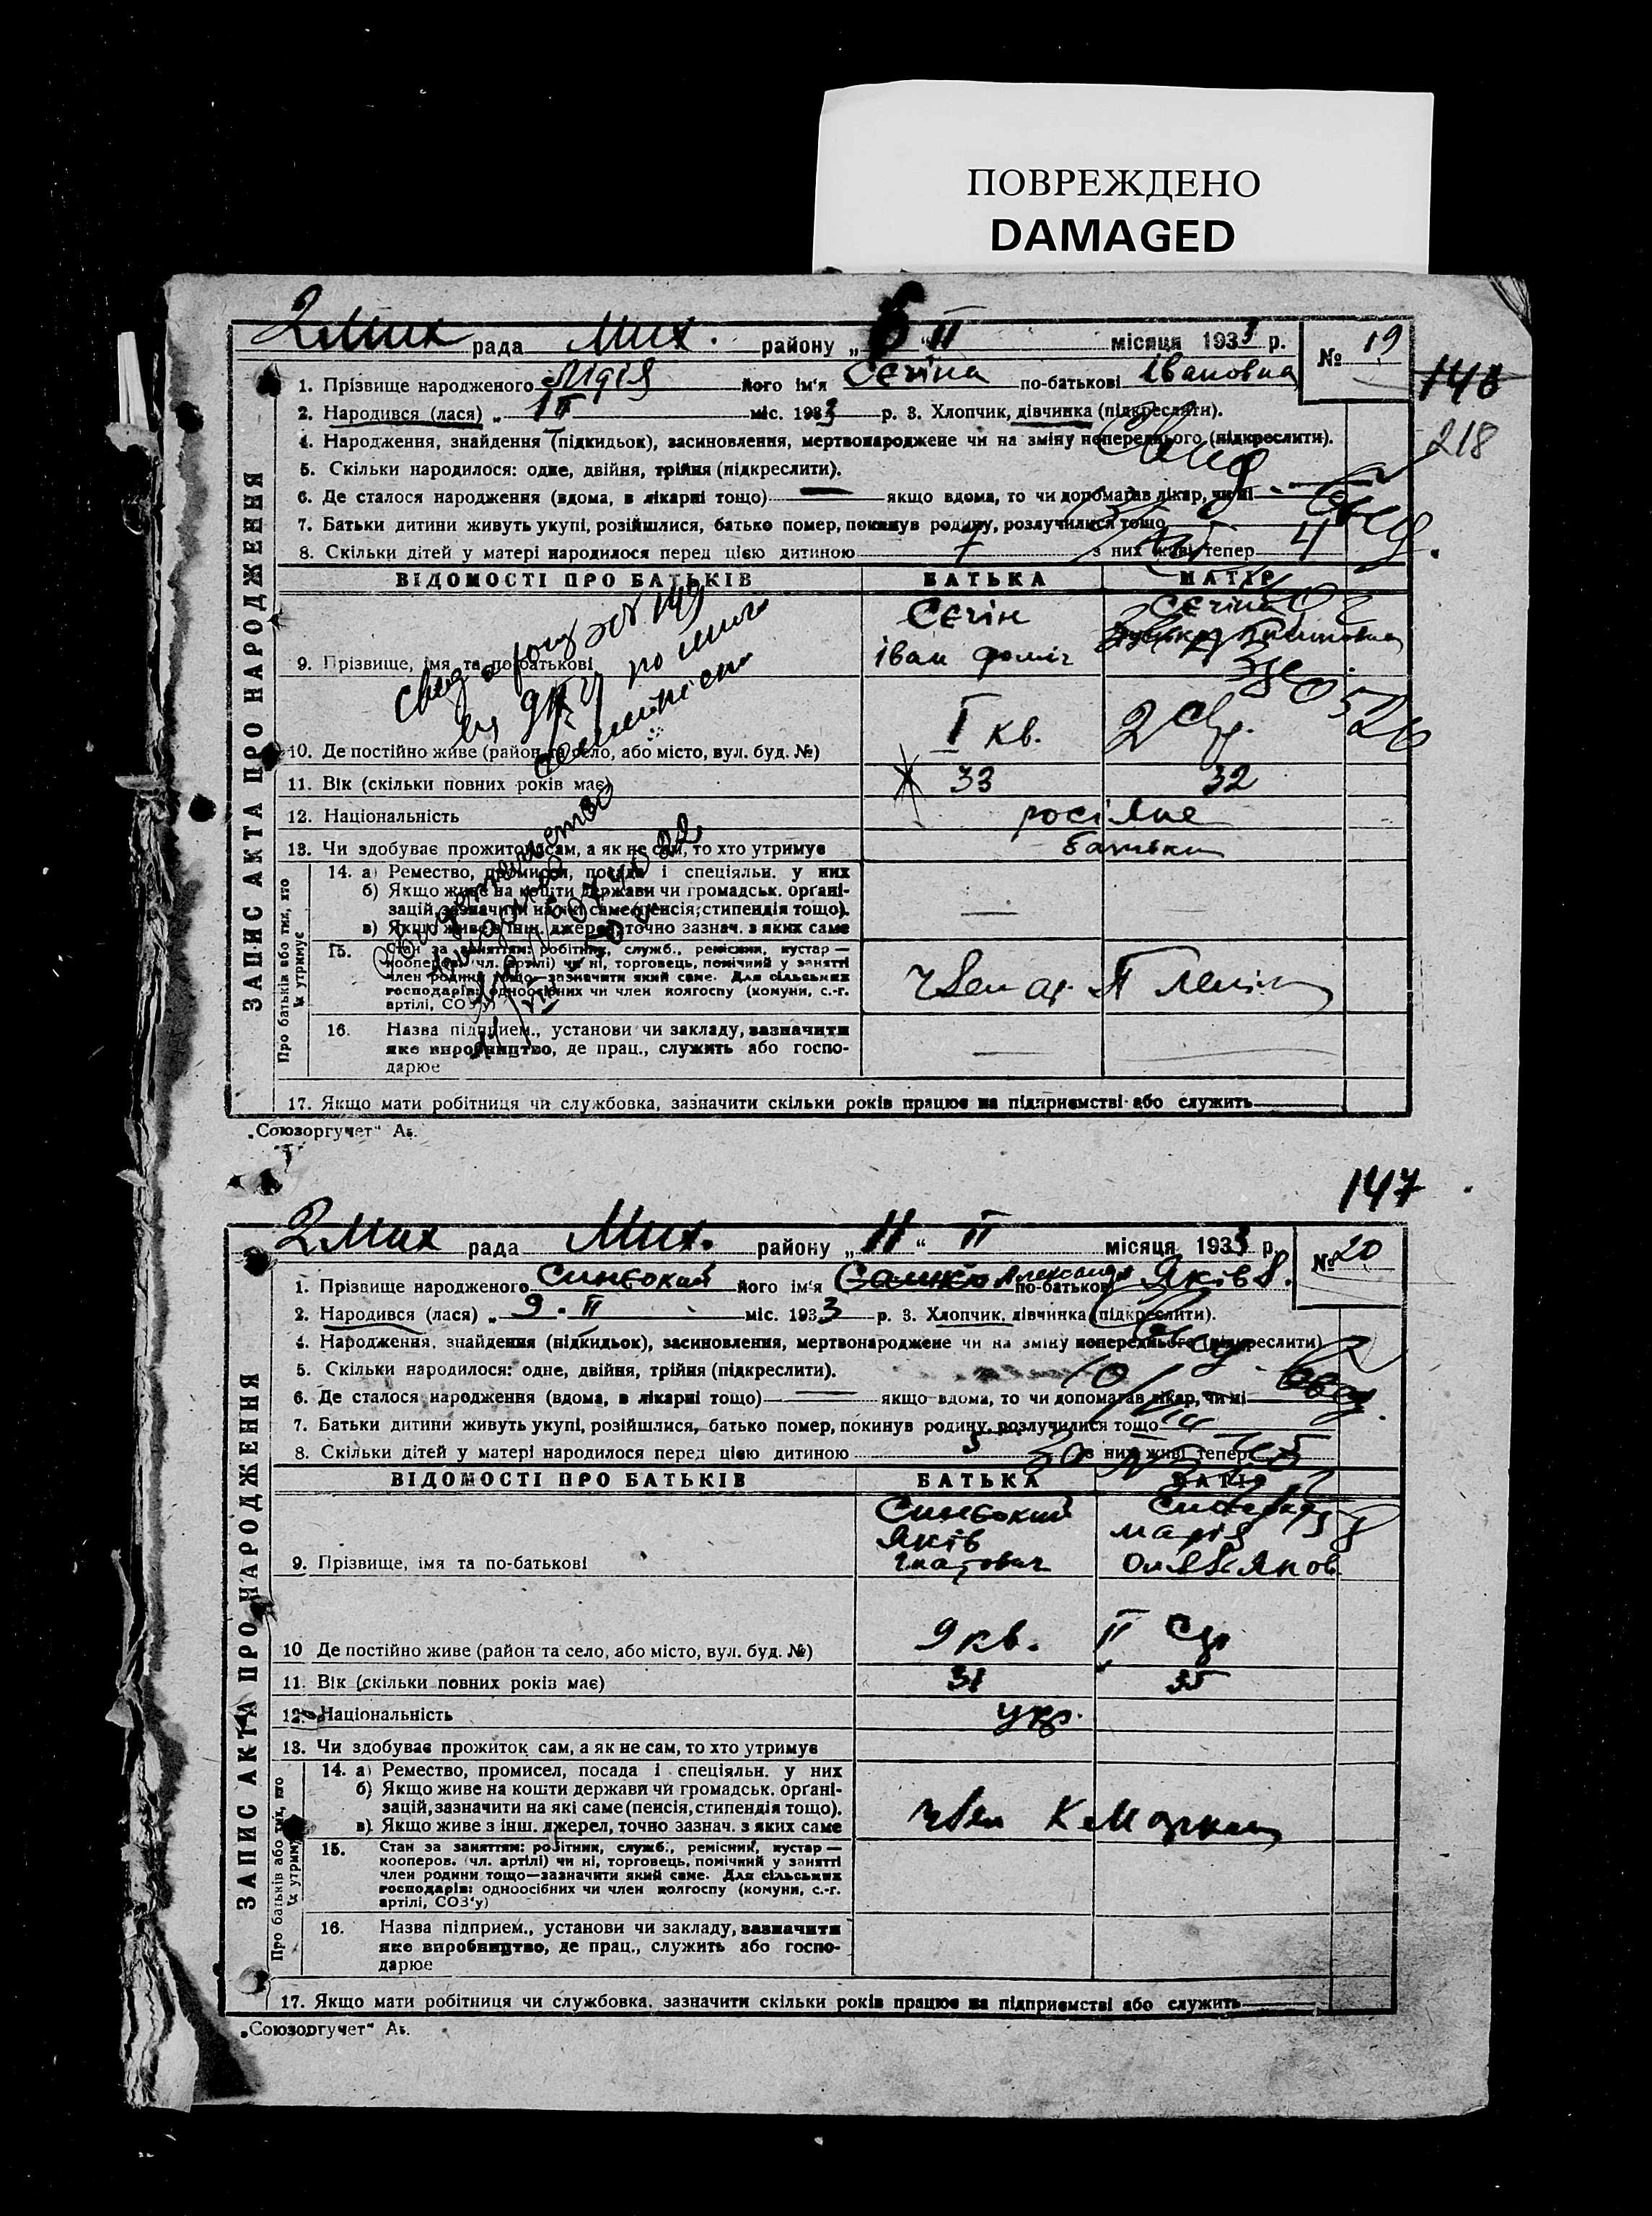 ПОВРЕЖДЕНО
DAMAGED
2 Мих рада Мих. району „6“ II місяця 1933 р. № 19
146
1. Прізвище народженого Лідія його ім'я Сєчіна по-батькові Івановна
2. Народився (лася) „ 1 II міс. 1933 р. 3. Хлопчик, дівчинка (підкреслити).
218
4. Народження, знайдення (підкидьок), засиновлення, мертвонароджене чи на зміну попереднього (підкреслити).
5. Скільки народилося: одне, двійня, трійня (підкреслити).
6. Де сталося народження (вдома, в лікарні тощо) — якщо вдома, то чи допомагав лікар, чи ні
7. Батьки дитини живуть укупі, розійшлися, батько помер, покинув родину, розлучилися тощо
8. Скільки дітей у матері народилося перед цією дитиною 7 з них живі тепер 4
ЗАПИС АКТА ПРО НАРОДЖЕННЯ
ВІДОМОСТІ ПРО БАТЬКІВ БАТЬКА МАТІР
Сєчін Сєчіна
9. Прізвище, імя та по-батькові Іван Фоміч
10. Де постійно живе (район та село, або місто, вул. буд. №) I кв. 2
11. Вік (скільки повних років має) 33 32
12. Національність росіяне
13. Чи здобуває прожиток сам, а як не сам, то хто утримує батьки
Про батьків або тих, хто їх утримує
14. а) Ремество, промисел, посада і спеціяльн. у них
б) Якщо живе на кошти держави чи громадськ. орґані-
зацій, зазначити на які саме (пенсія, стипендія тощо).
в) Якщо живе з інш. джерел, точно зазнач. з яких саме
15. Стан за заняттям: робітник, служб., ремісник, кустар —
кооперов. (чл. артілі) чи ні, торговець, помічний у занятті
член родини тощо—зазначити який саме. Для сільських
господарів: одноосібних чи член колгоспу (комуни, с.-г.
артілі, СОЗ'у) член ар.
16. Назва підприєм., установи чи закладу, зазначити
яке виробництво, де прац., служить або госпо-
дарює
17. Якщо мати робітниця чи службовка, зазначити скільки років працює на підприємстві або служить
„Союзоргучет“ Аз.
147
2 Мих рада Мих. району „11“ II місяця 1933 р. № 20
1. Прізвище народженого Синєокий його ім'я Александр по-батькові Яківл.
2. Народився (лася) „ 9 · II міс. 1933 р. 3. Хлопчик, дівчинка (підкреслити).
4. Народження, знайдення (підкидьок), засиновлення, мертвонароджене чи на зміну попереднього (підкреслити)
5. Скільки народилося: одне, двійня, трійня (підкреслити).
6. Де сталося народження (вдома, в лікарні тощо) — якщо вдома, то чи допомагав лікар, чи ні
7. Батьки дитини живуть укупі, розійшлися, батько помер, покинув родину, розлучилися тощо
8. Скільки дітей у матері народилося перед цією дитиною 5 з них живі тепер
ЗАПИС АКТА ПРО НАРОДЖЕННЯ
ВІДОМОСТІ ПРО БАТЬКІВ БАТЬКА МАТІР
Синєокий
Яків Марія
9. Прізвище, імя та по-батькові Ігнатович
10 Де постійно живе (район та село, або місто, вул. буд. №) 9 кв. II
11. Вік (скільки повних років має) 31 35
12. Національність укр.
13. Чи здобуває прожиток сам, а як не сам, то хто утримує
Про батьків або тих, хто їх утримує
14. а) Ремество, промисел, посада і спеціяльн. у них
б) Якщо живе на кошти держави чи громадськ. орґані-
зацій, зазначити на які саме (пенсія, стипендія тощо).
в) Якщо живе з інш. джерел, точно зазнач. з яких саме член
15. Стан за заняттям: робітник, служб., ремісник, кустар —
кооперов. (чл. артілі) чи ні, торговець, помічний у занятті
член родини тощо—зазначити який саме. Для сільських
господарів: одноосібних чи член колгоспу (комуни, с.-г.
артілі, СОЗ'у)
16. Назва підприєм., установи чи закладу, зазначити
яке виробництво, де прац., служить або госпо-
дарює
17. Якщо мати робітниця чи службовка, зазначити скільки років працює на підприємстві або служить
„Союзоргучет“ Аз.